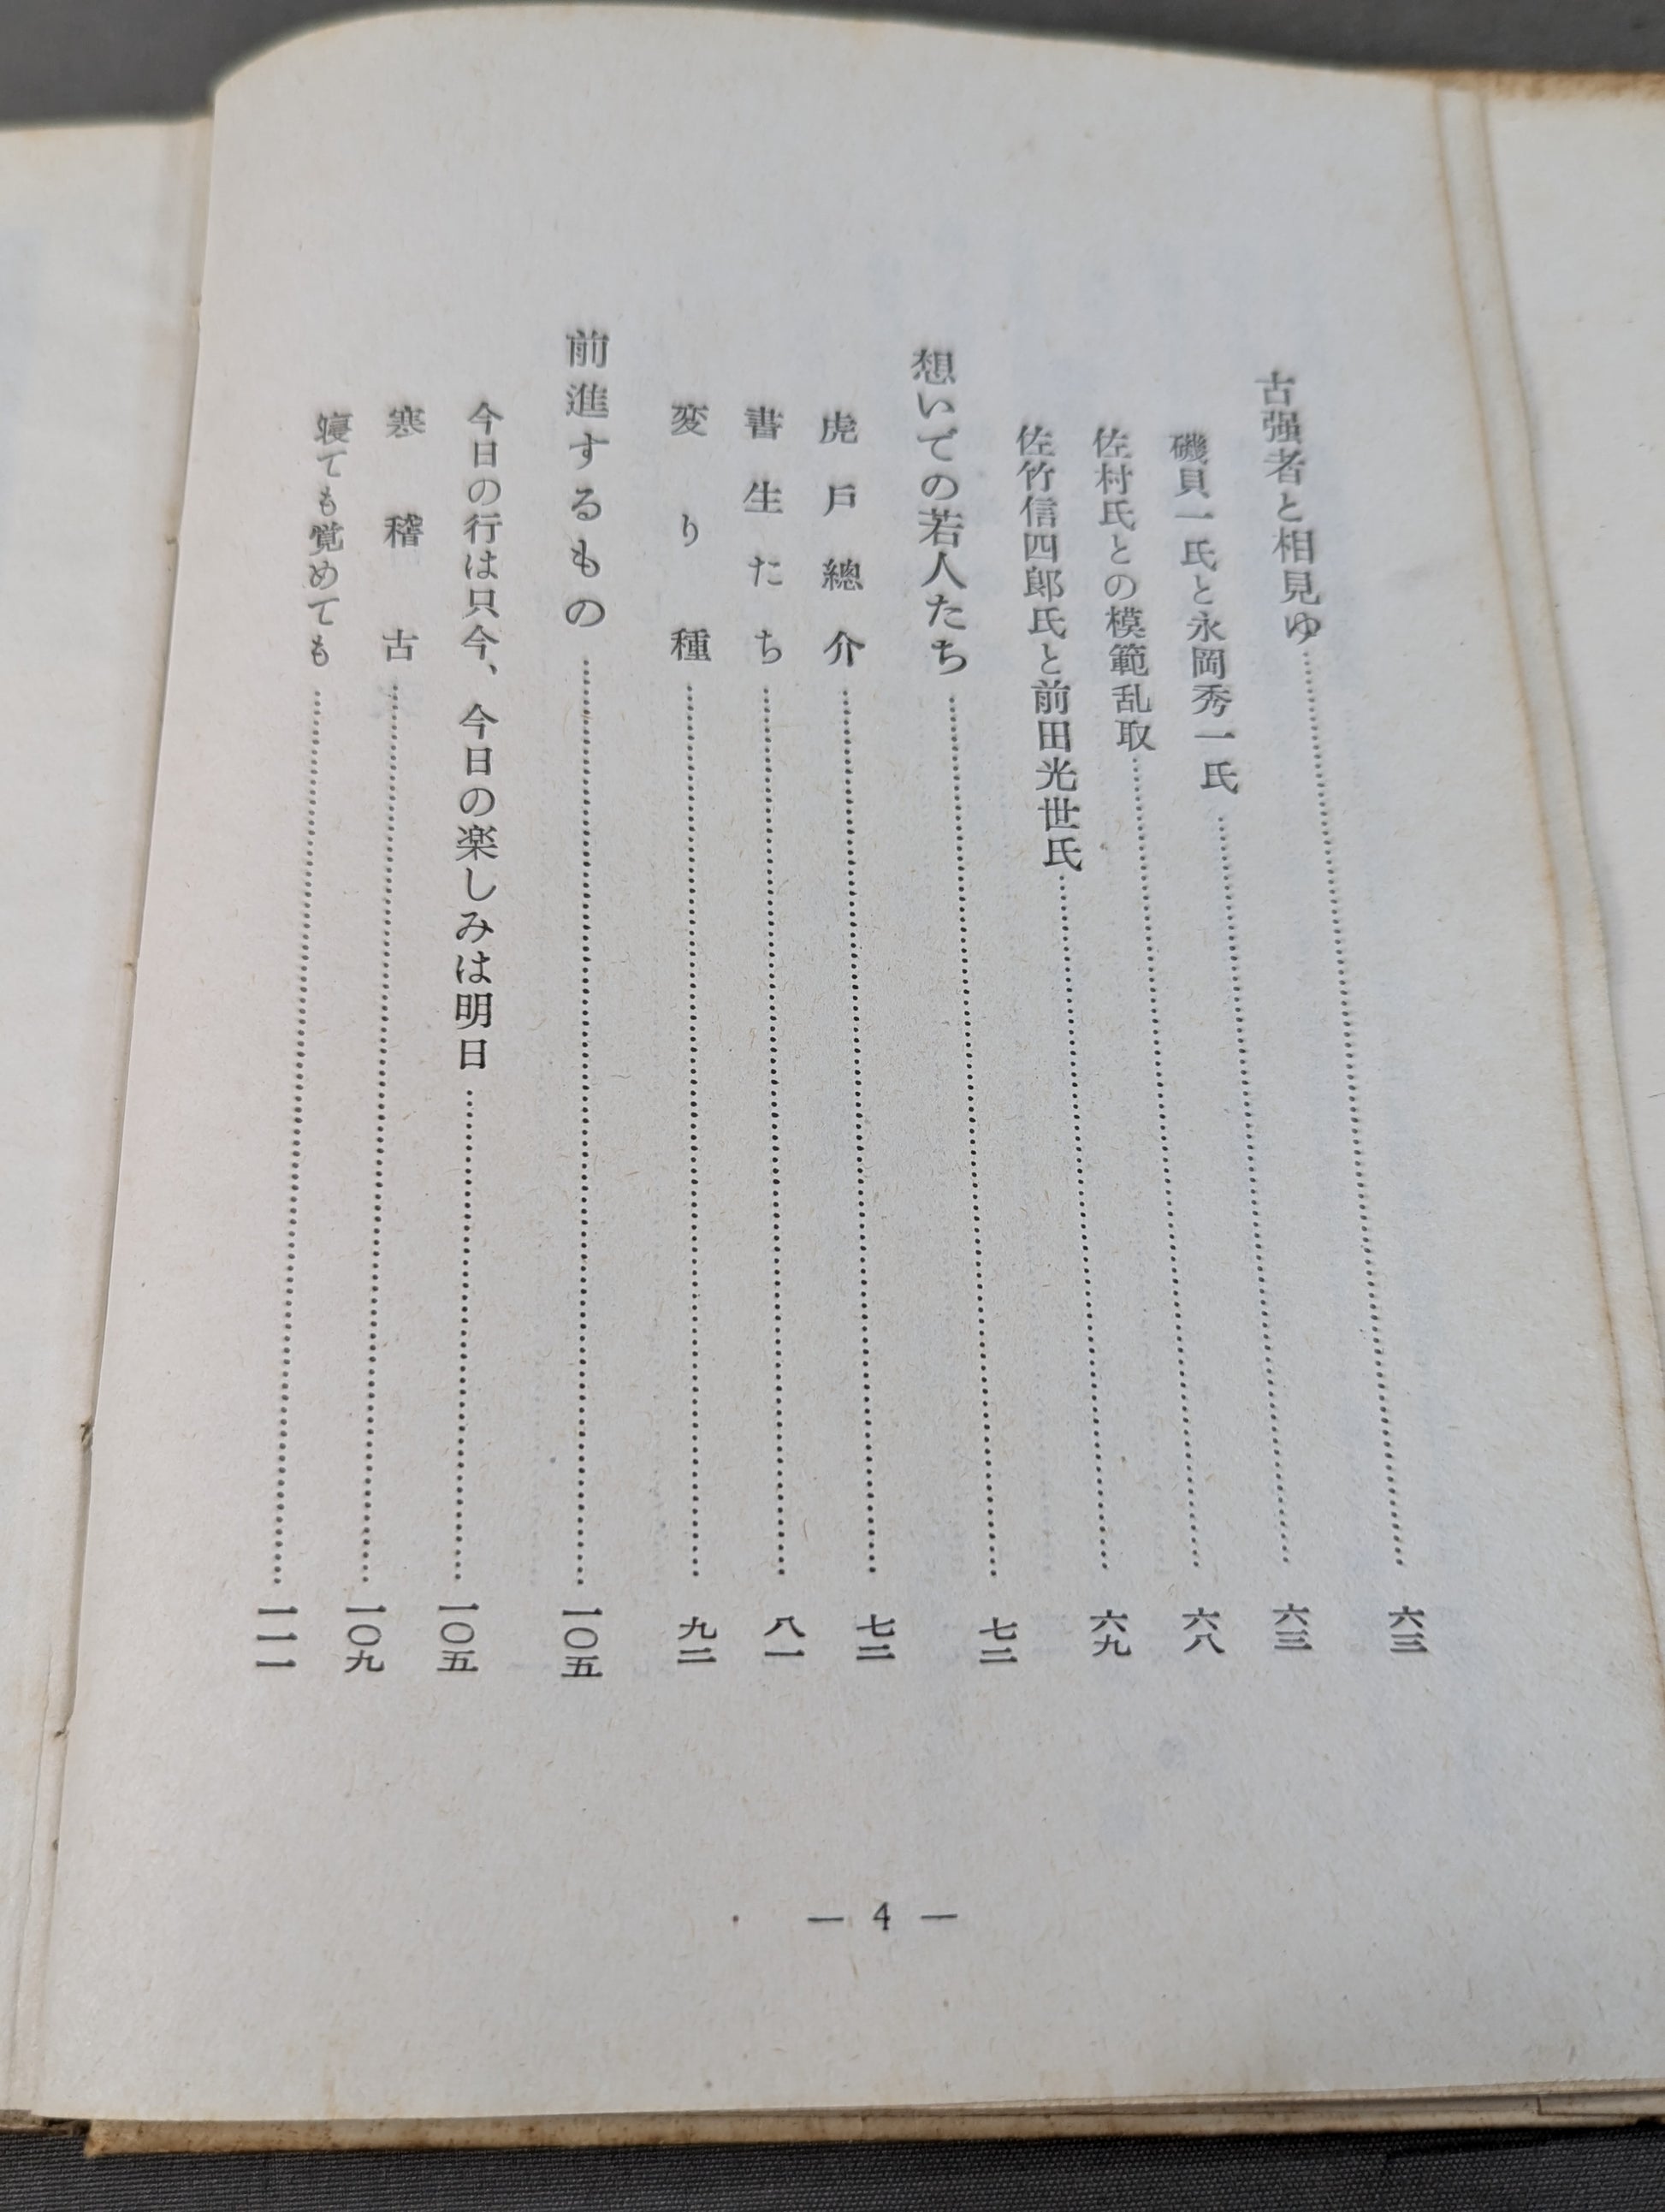 古强者と相見ゆ……六三
磯貝一氏と永岡秀一氏……六三
佐村氏との模範乱取……六八
佐竹信四郎氏と前田光世氏……六九
想いでの若人たち……七二
虎戸總介……七二
書生たち……八一
変り種……九二
前進するもの……一〇五
今日の行は只今、今日の楽しみは明日……一〇五
寒稽古……一〇九
寝ても覚めても……一一一
— 4 —